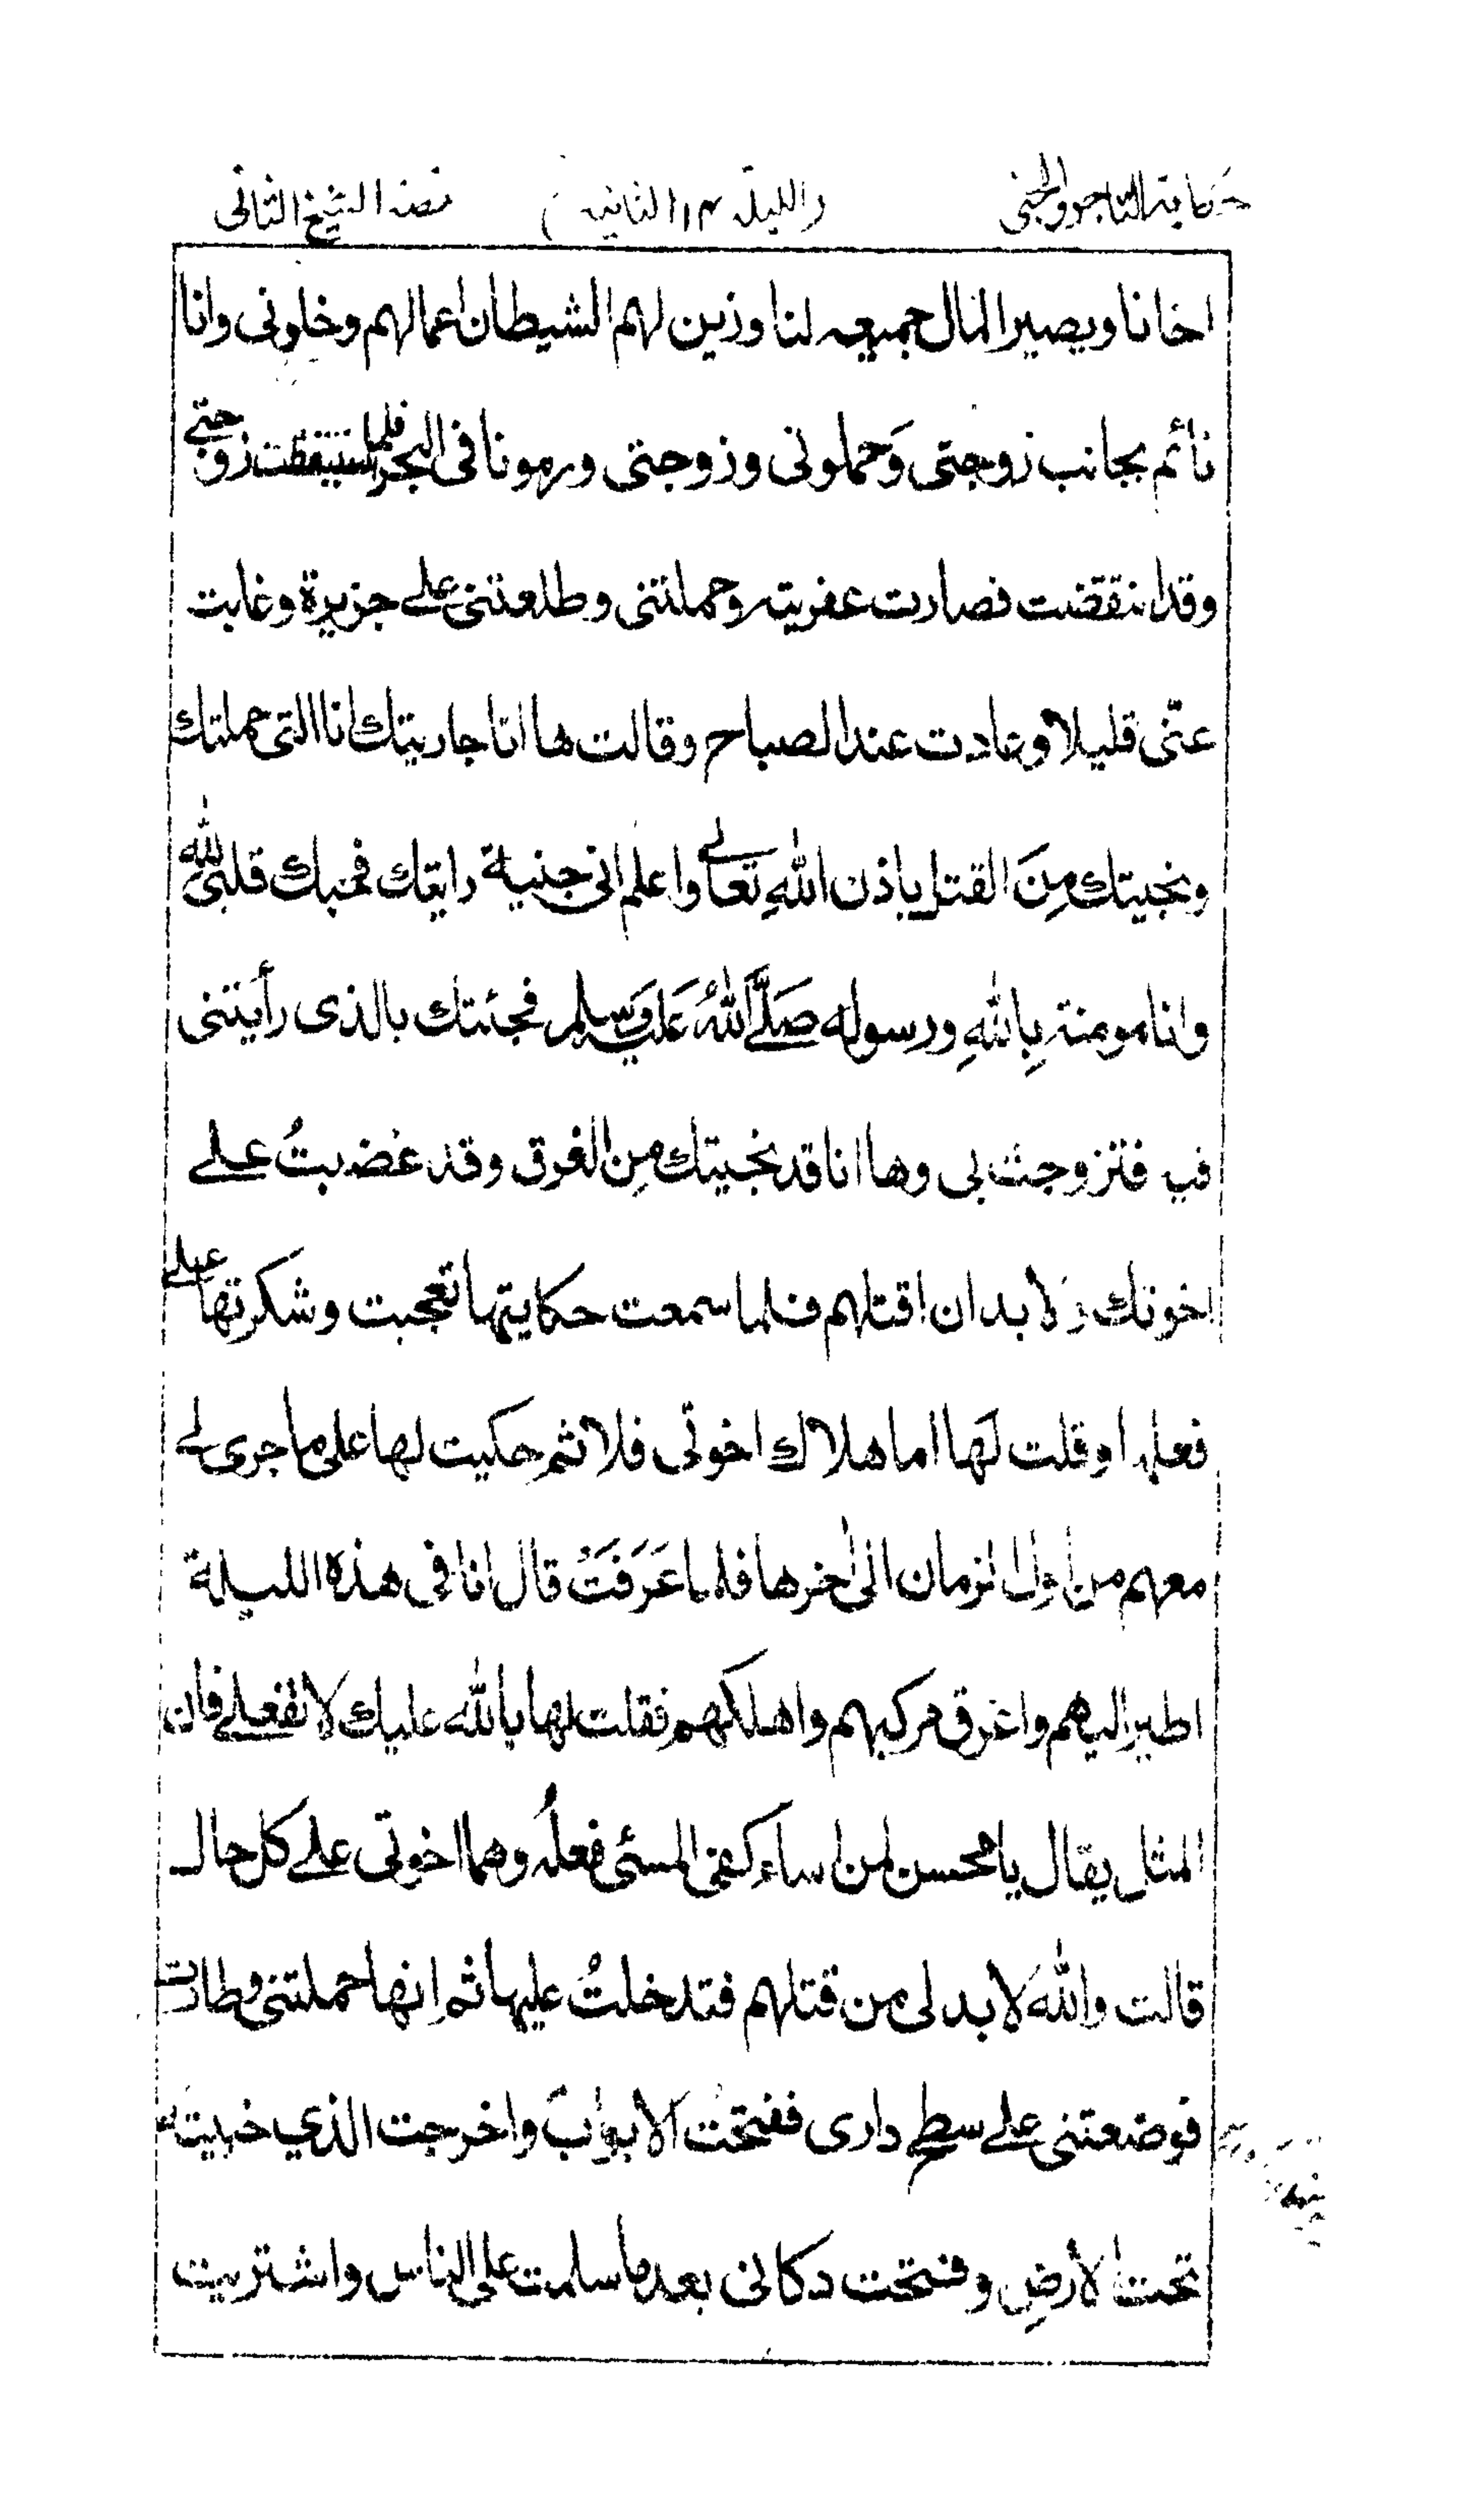 حكاية التاجر والجني (الليلة الثانية) قصة الشيخ الثاني
اخانا ويصير المال جميعه لنا وزين لهم الشيطان اعمالهم وخلوني وانا
نائم بجانب زوجتي وَحملوني وزوجتي ورمونا في البحر فلما استيقظت زوجتي
وقد انتقضت فصارت عفريته وحملتني وطلعتني على جزيرة وغابت
عنّي قليلا وعادت عند الصباح وقالت ها انا جاريتك انا التي حملتك
ونجيتك مِنَ القتل باذن اللهِ تعالى واعلم اني جنية رايتك فحبك قلبي لله
وانا مومنة بِاللهِ ورسوله صَلَّى اللهُ عَليه وَسلم فجئتك بالذي رأيتني
فيه فتزوجت بي وها انا قد نجيتك مِن الغرق وقد غضبتُ على
اخوتك ولا بد ان اقتلهم فلما سمعت حكايتها تعجبت وشكرتها على
فعلها وقلت لَها اما هلاك اخوتي فلا ثم حكيت لها على ما جرى لي
معهم من اول الزمان الى اخرها فلما عَرَفَتْ قال انا في هذه الليلة
اطير اليهم واغرق مركبهم واهلكهم فقلت لها بالله عليك لا تفعلي فان
المثل يقال يا محسن لمن اساء كفى المسئ فعلُه وهما اخوتي على كل حال
قالت والله لا بد لي من قتلهم فتدخلتُ عليها ثم انها حملتني وطارت
فوضعتني على سطح داري ففتحتُ الابوابَ واخرجت الذي خبيته
تحت الأرضِ وفتحت دكاني بعد ما سلمت على الناس واشتريت